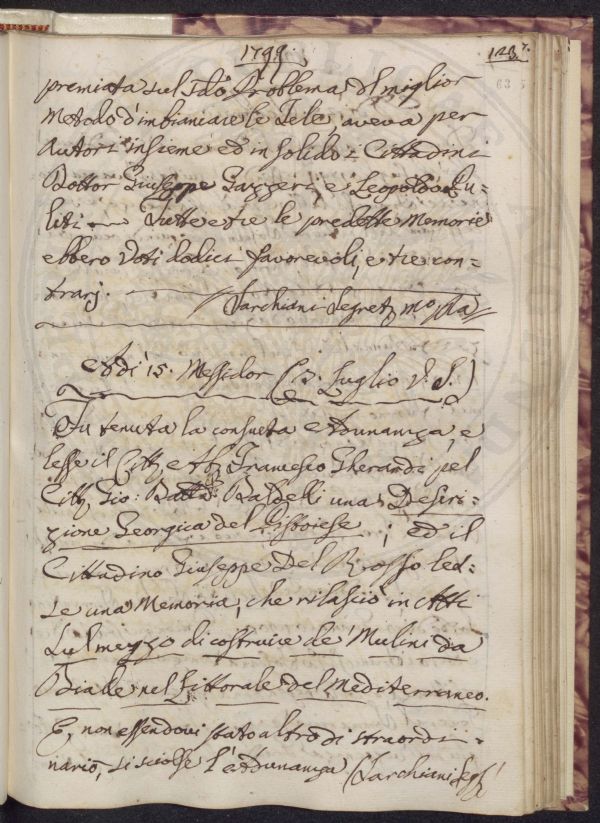 1799.
123.
63
premiata sul sdo Problema del miglior
Metodo d'imbiancare le Tele, aveva per
Autori insieme ed in solido i Cittadini
Dottor Giuseppe Gazzeri, e Leopoldo Gu-
liti Tutte e tre le predette Memorie
ebbero Voti dodici favorevoli, e tre con-
trarj.
Tarchiani Segret.
Adì 15. Messidor (3. Luglio V. S.)
Fu tenuta la consueta Adunanza, e
lesse il Citt. Ab. Francesco Gherardi pel
Citt. Gio: Batta Baldelli una Descri-
zione Georgica del Pistoiese; ed il
Cittadino Giuseppe Del Rosso les-
se una Memoria, che rilasciò in Atti
sul mezzo di costruire de' Mulini da
Biade nel Littorale del Mediterraneo.
E, non essendovi stato altro di straordi-
nario, si sciolse l'Adunanza (Tarchiani Segr.